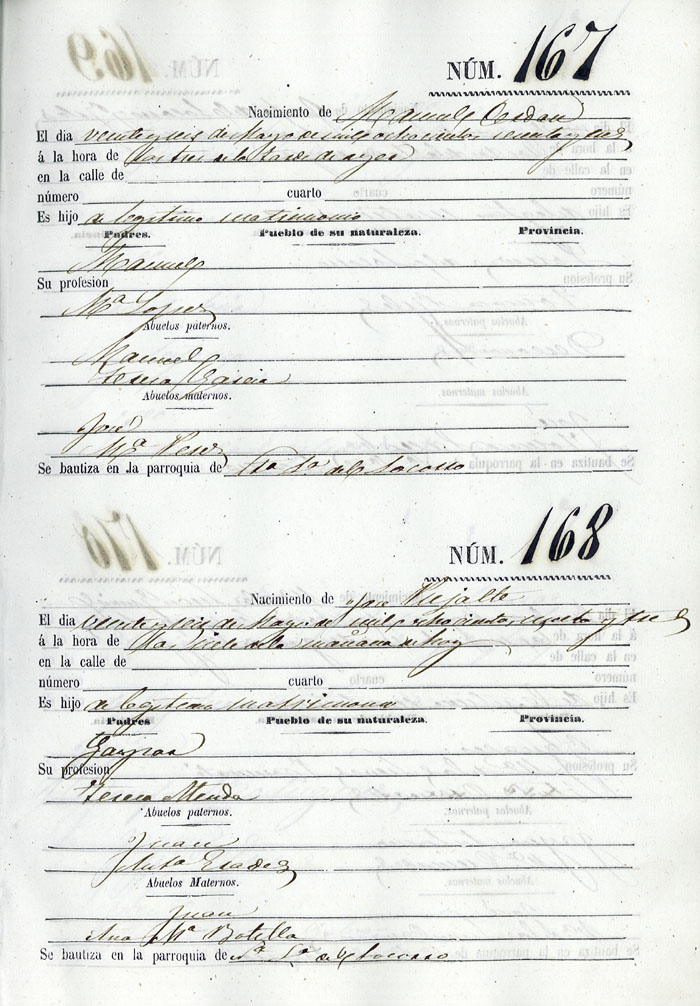 NÚM. 167
Nacimiento de Manuel
El dia veinte y seis de Mayo de mil ochocientos sesenta y tres
á la hora de las tres de la tarde de ayer
en la calle de
número cuarto
Es hijo de legitimo matrimonio
Padres. Pueblo de su naturaleza. Provincia.
Manuel
Su profesion
Mª Lopez
Abuelos paternos.
Manuel
Teresa Garcia
Abuelos maternos.
José
Mª Perez
Se bautiza en la parroquia de Nª Sª del Socorro
NÚM. 168
Nacimiento de José
El dia veinte y seis de Mayo de mil ochocientos sesenta y tres
á la hora de las siete de la mañana de hoy
en la calle de
número cuarto
Es hijo de legitimo matrimonio
Padres Pueblo de su naturaleza. Provincia.
Gaspar
Su profesion
Teresa
Abuelos paternos.
Juan
Abuelos Maternos.
Juan
Ana Mª Botella
Se bautiza en la parroquia de Nª Sª del Socorro